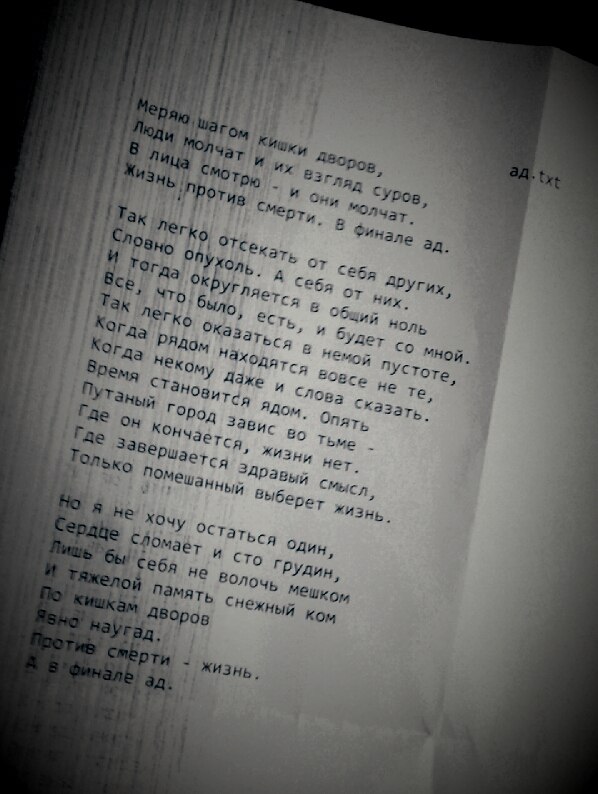 ад.txt
Меряю шагом кишки дворов,
Люди молчат и их взгляд суров,
В лица смотрю - и они молчат.
Жизнь против смерти. В финале ад.
Так легко отсекать от себя других,
Словно опухоль. А себя от них.
И тогда округляется в общий ноль
Все, что было, есть, и будет со мной.
Так легко оказаться в немой пустоте,
Когда рядом находятся вовсе не те,
Когда некому даже и слова сказать.
Время становится ядом. Опять
Путаный город завис во тьме -
Где он кончается, жизни нет.
Где завершается здравый смысл,
Только помешанный выберет жизнь.
Но я не хочу остаться один,
Сердце сломает и сто грудин,
Лишь бы себя не волочь мешком
И тяжелой память снежный ком
По кишкам дворов
Явно наугад.
Против смерти - жизнь.
А в финале ад.